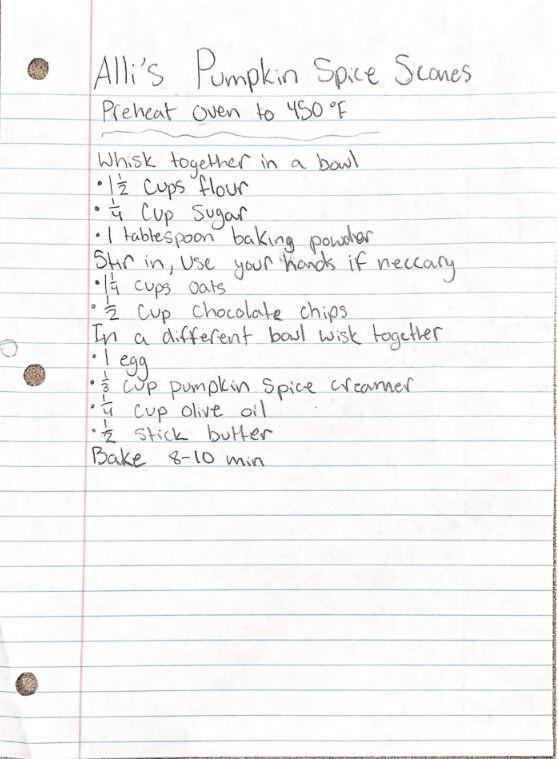 Alli's Pumpkin Spice Scones
Preheat oven to 450 °F
Whisk together in a bowl
• 1 1/2 cups flour
• 1/4 cup sugar
• 1 tablespoon baking powder
Stir in, use your hands if neccary
• 1 1/4 cups oats
• 1/2 cup chocolate chips
In a different bowl wisk together
• 1 egg
• 1/3 cup pumpkin spice creamer
• 1/4 cup olive oil
• 1/2 stick butter
Bake 8-10 min